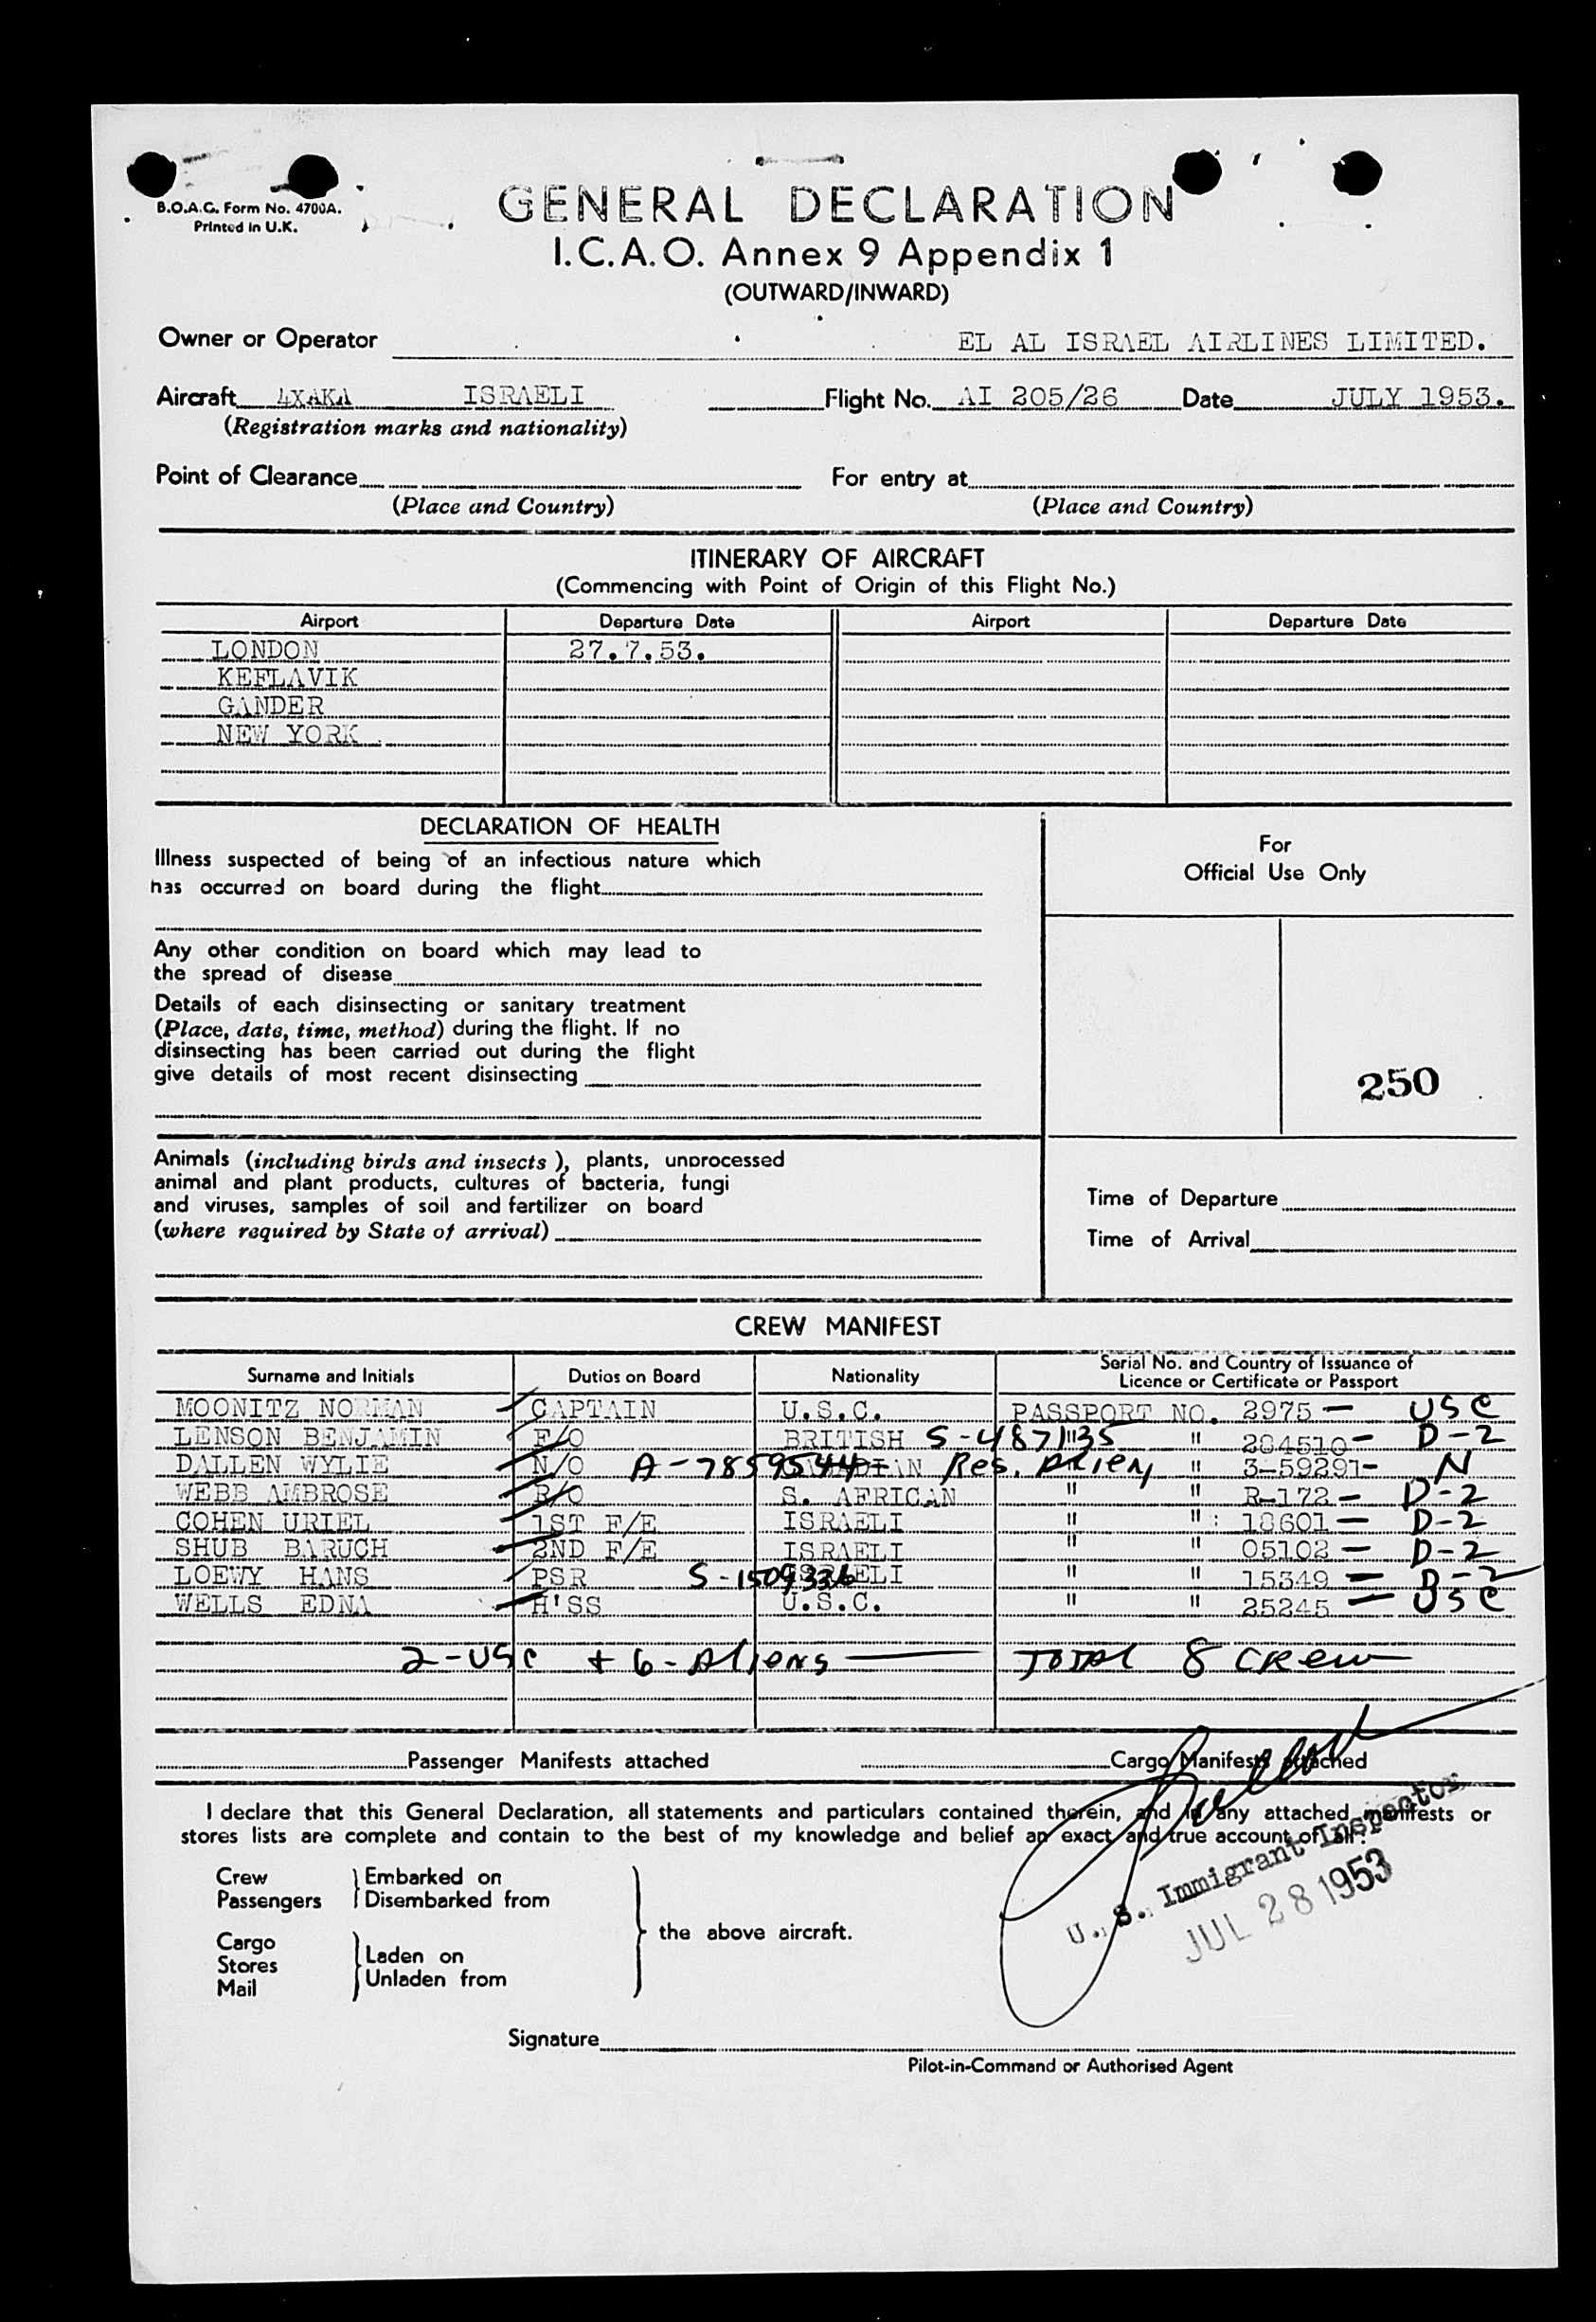 B.O.A.C. Form No. 4700A.
Printed in U.K.
GENERAL DECLARATION
I.C.A.O. Annex 9 Appendix 1
(OUTWARD/INWARD)
Owner or Operator EL AL ISRAEL AIRLINES LIMITED.
Aircraft 4XAKA ISRAELI Flight No. AI 205/26 Date JULY 1953.
(Registration marks and nationality)
Point of Clearance For entry at
(Place and Country) (Place and Country)
ITINERARY OF AIRCRAFT
(Commencing with Point of Origin of this Flight No.)
Airport Departure Date Airport Departure Date
LONDON 27.7.53.
KEFLAVIK
GANDER
NEW YORK
DECLARATION OF HEALTH
Illness suspected of being of an infectious nature which
has occurred on board during the flight
Any other condition on board which may lead to
the spread of disease
Details of each disinsecting or sanitary treatment
(Place, date, time, method) during the flight. If no
disinsecting has been carried out during the flight
give details of most recent disinsecting
For
Official Use Only
250
Animals (including birds and insects), plants, unprocessed
animal and plant products, cultures of bacteria, fungi
and viruses, samples of soil and fertilizer on board
(where required by State of arrival)
Time of Departure
Time of Arrival
CREW MANIFEST
Surname and Initials Duties on Board Nationality Serial No. and Country of Issuance of
Licence or Certificate or Passport
MOONITZ NORMAN CAPTAIN U.S.C. PASSPORT NO. 2975 — USC
LENSON BENJAMIN F/O BRITISH S-4871135 " 284510 - D-2
DALLEN WYLIE N/O A-7859544 CANADIAN Res. Alien " 3-59291- N
WEBB AMBROSE R/O S. AFRICAN " " R-172 - D-2
COHEN URIEL 1ST F/E ISRAELI " " : 18601 — D-2
SHUB BARUCH 2ND F/E ISRAELI " " 05102 — D-2
LOEWY HANS PSR S-1509336 ISRAELI " " 15349 — D-2
WELLS EDNA H'SS U.S.C. " " 25245 — USC
2-USC + 6-Aliens — TOTAL 8 CREW
Passenger Manifests attached Cargo Manifests attached
I declare that this General Declaration, all statements and particulars contained therein, and in any attached manifests or
stores lists are complete and contain to the best of my knowledge and belief an exact and true account of all:
Crew
Passengers
Embarked on
Disembarked from
Cargo
Stores
Mail
Laden on
Unladen from
the above aircraft.
U. S. Immigrant Inspector
JUL 28 1953
Signature
Pilot-in-Command or Authorised Agent